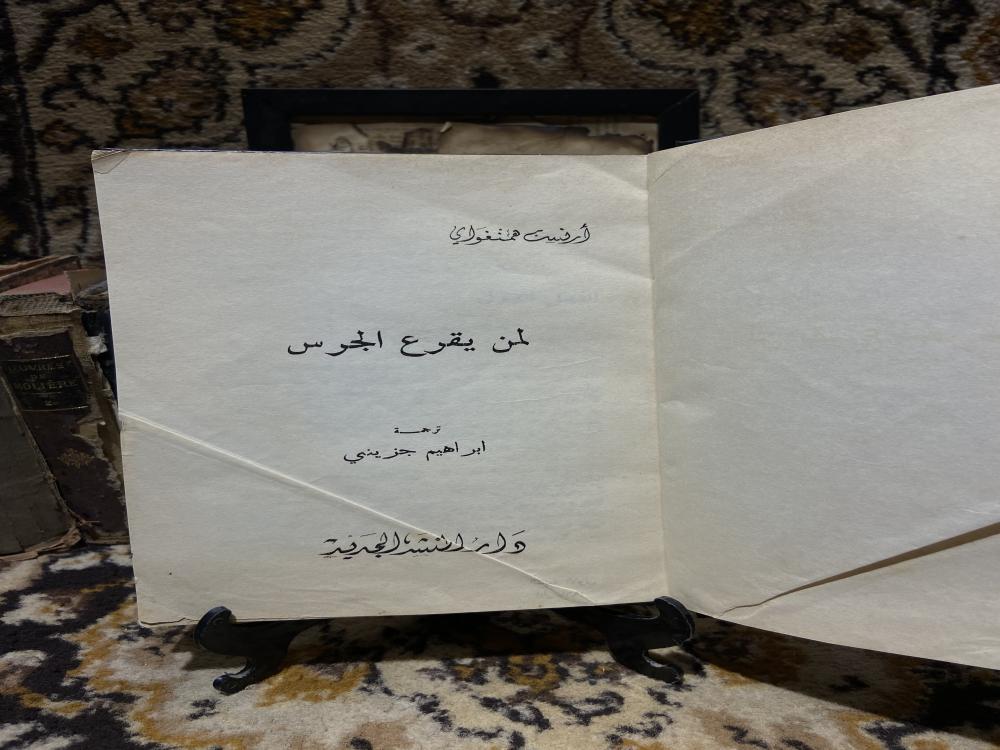 أرنست همنغواي
لمن يقرع الجرس
ترجمة
ابراهيم جزيني
دار النشر الجديد
OEUVRES
DE
MOLIÈRE